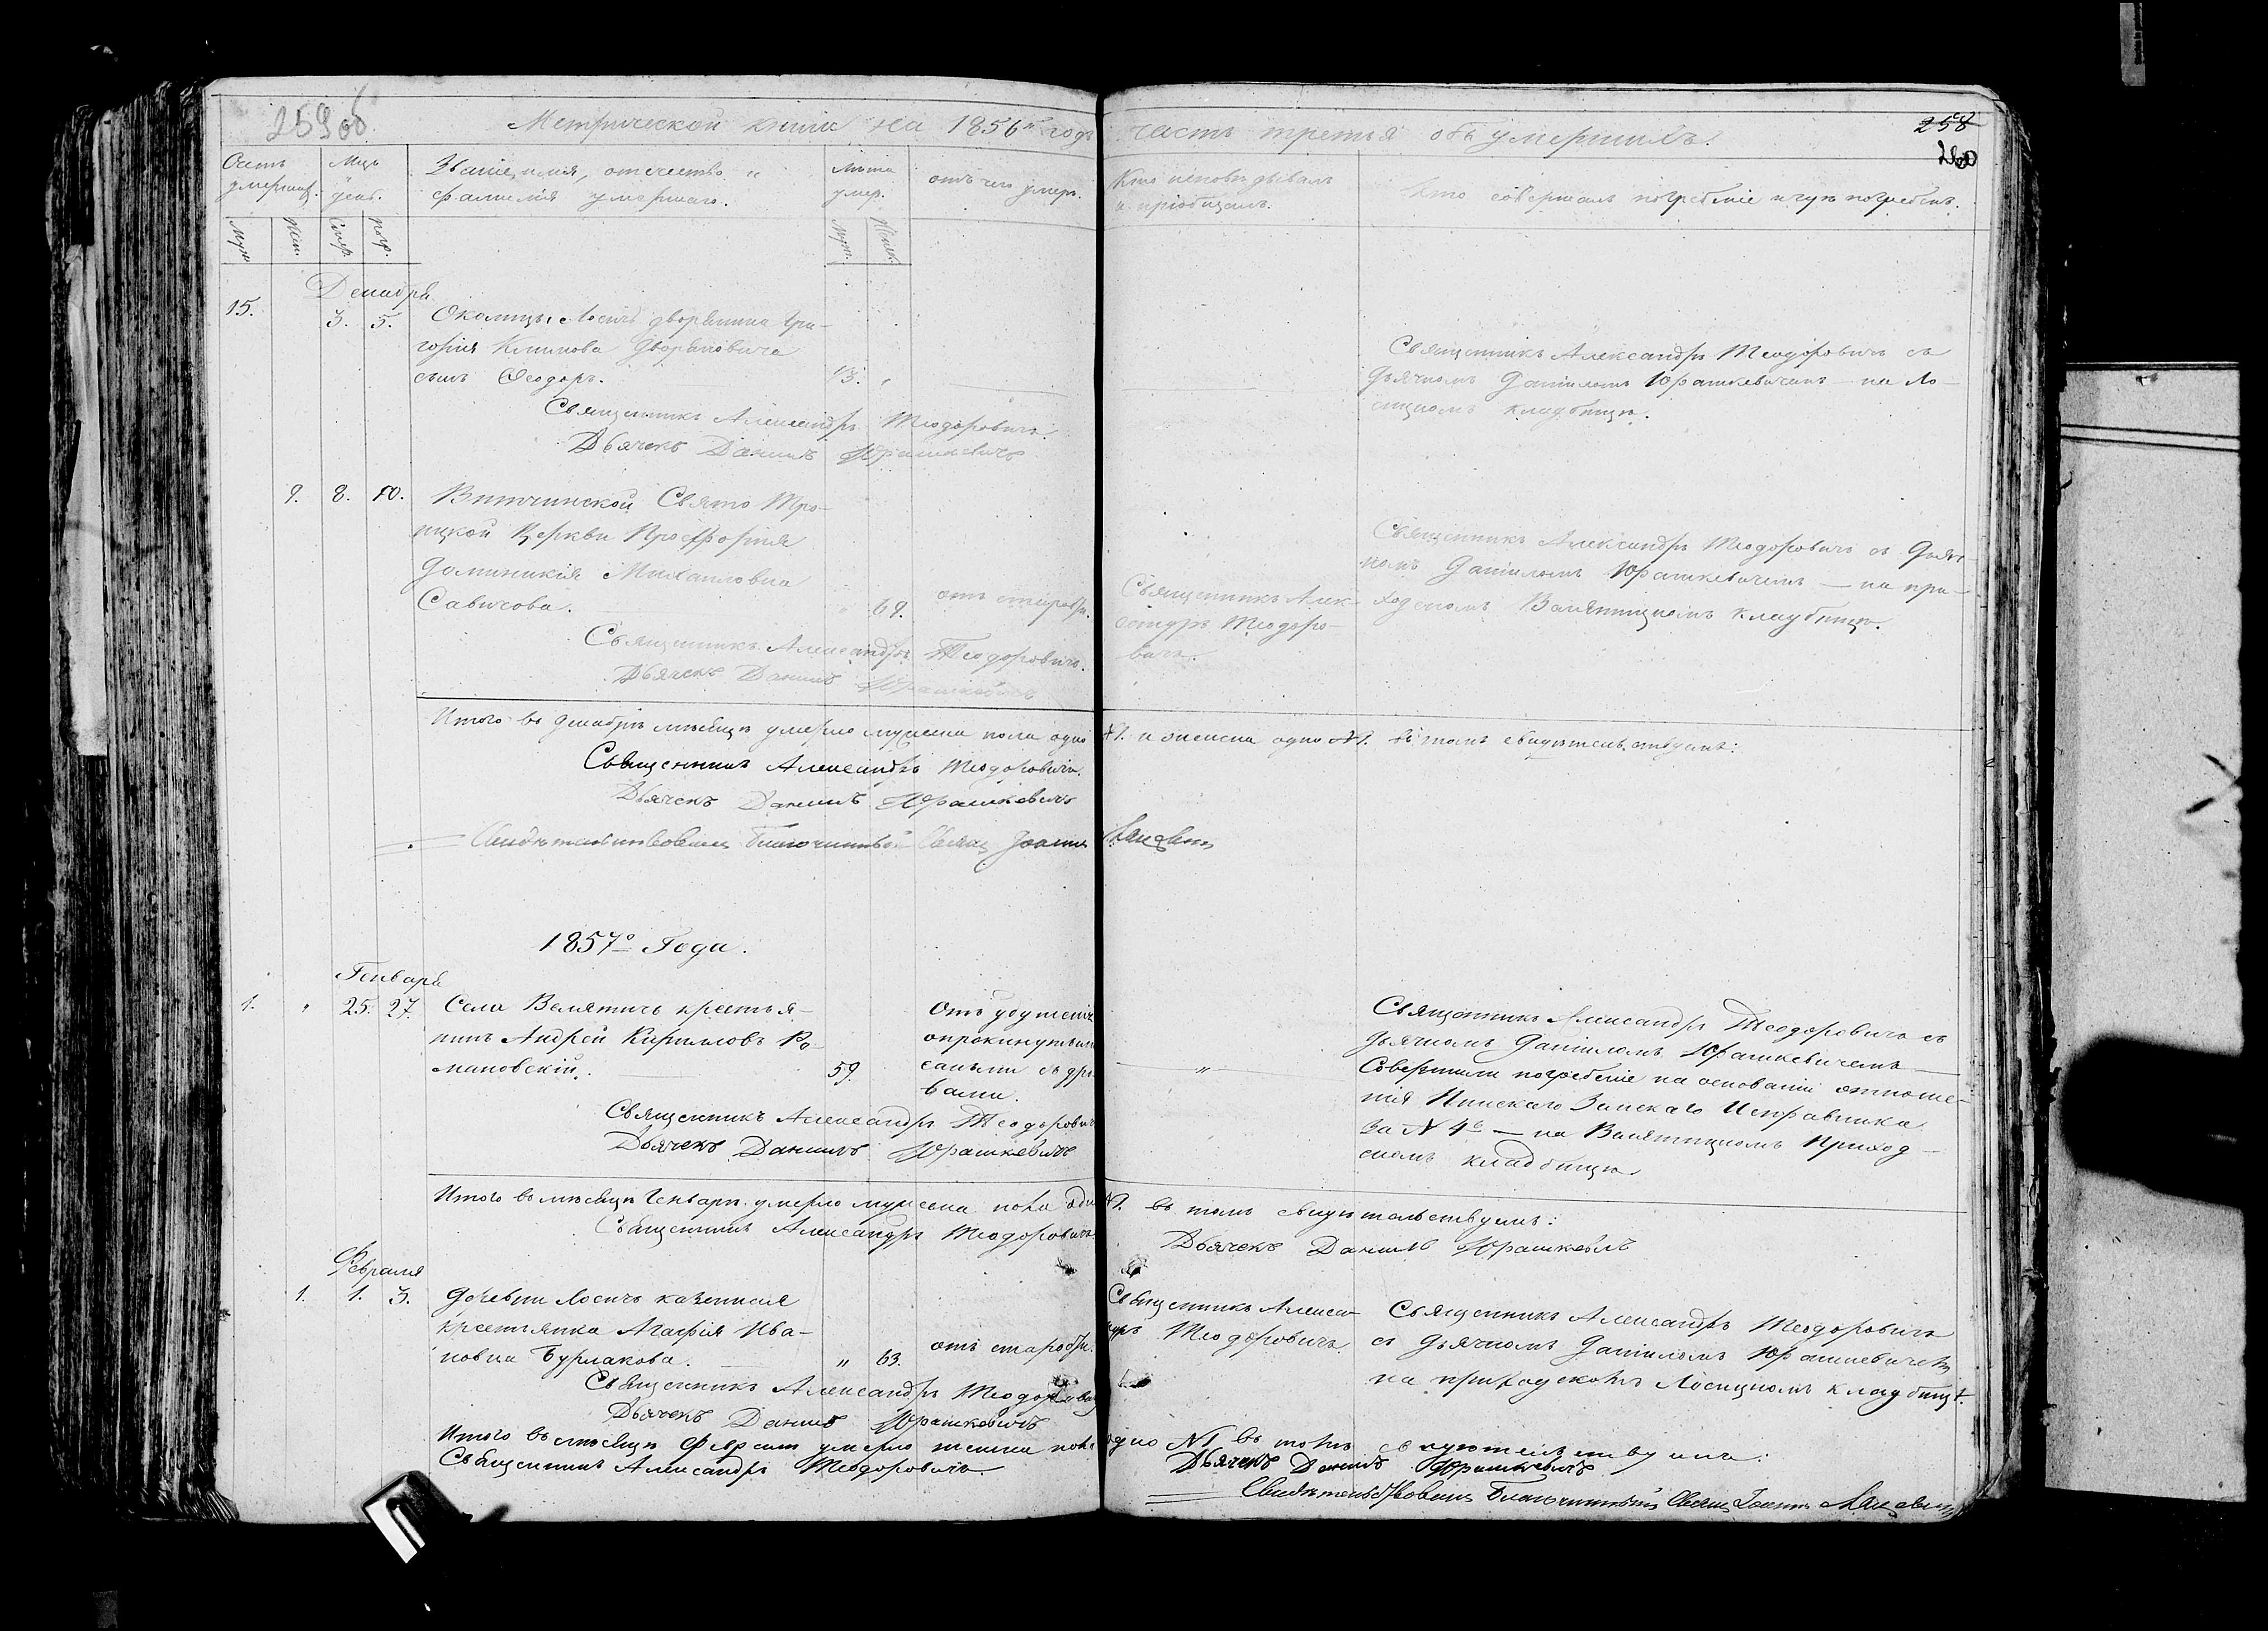 259 об
Метрической книги на 1856й годъ часть третья объ умершихъ.
258
260
Счетъ умершихъ.
Мцъ день.
Званіе, имя, отчество и фамилія умершаго.
Лѣта умер.
отъ чего умеръ.
Кто исповѣдывалъ и пріобщалъ.
Кто совершалъ погребеніе и гдѣ погребенъ.
Муж.
Жен.
Смер.
Погр.
Муж.
Женск.
Декабря
15. 3. 5. Околицы Лосичъ дворянина Гри-
горія Климова Дворановича
сынъ Ѳеодоръ. 1/3.
Священникъ Александръ Теодоровичъ съ
дьячкомъ Даніиломъ Юрашкевичемъ — на Ло-
сицкомъ кладбищѣ.
Священникъ Александръ Теодоровичъ.
Дьячекъ Даніилъ Юрашкевичъ
9. 8. 10. Витчинской Свято Тро-
ицкой Церкви Просфорня
Доминикія Михайловна
Савичова. 69. отъ старости.
Священникъ Алек-
сандръ Теодоро-
вичъ.
Священникъ Александръ Теодоровичъ съ Дьяч-
комъ Даніиломъ Юрашкевичемъ — на при-
ходскомъ Велятицкомъ кладбищѣ.
Священникъ Александръ Теодоровичъ.
Дьячекъ Даніилъ Юрашкевичъ
Итого въ декабрѣ мѣсяцѣ умерло мужеска пола одно №1. и женска одно №1. въ томъ свидѣтельствуемъ:
Священникъ Александръ Теодоровичъ.
Дьячекъ Даніилъ Юрашкевичъ
Свидѣтельствовалъ Благочинный Священ Іоаннъ
1857го Года.
Генваря
1. " 25. 27. Села Велятичъ крестья-
нинъ Андрей Кирилловъ Ро-
мановскій. 59.
Отъ удушенія
опрокинутыми
саньми съ дро-
вами.
"
Священникъ Александръ Теодоровичъ съ
дьячкомъ Даніиломъ Юрашкевичемъ —
Совершили погребеніе на основаніи отноше-
нія Пинскаго Земскаго Исправника
за № 46 — на Велятицкомъ Приход-
скомъ кладбищѣ
Священникъ Александръ Теодоровичъ
Дьячекъ Даніилъ Юрашкевичъ
Итого въ мѣсяцѣ Генварѣ умерло мужеска пола одинъ №1. въ томъ свидѣтельствуемъ:
Священникъ Александръ Теодоровичъ. Дьячекъ Даніилъ Юрашкевичъ
Февраля
1. 1. 3. Деревни Лосичъ казенная
крестьянка Агафія Ива-
новна Бурлакова. " 63. отъ старости.
Священникъ Алексан-
дръ Теодоровичъ.
Священникъ Александръ Теодоровичъ
съ дьячкомъ Даніиломъ Юрашкевичемъ
на приходскомъ Лосицкомъ кладбищѣ.
Священникъ Александръ Теодоровичъ
Дьячекъ Даніилъ Юрашкевичъ
Итого въ мѣсяцѣ Февралѣ умерло женска пола одно №1 въ томъ свидѣтельствуемъ:
Священникъ Александръ Теодоровичъ. Дьячекъ Даніилъ Юрашкевичъ
Свидѣтельствовалъ Благочинный Священ Іоаннъ